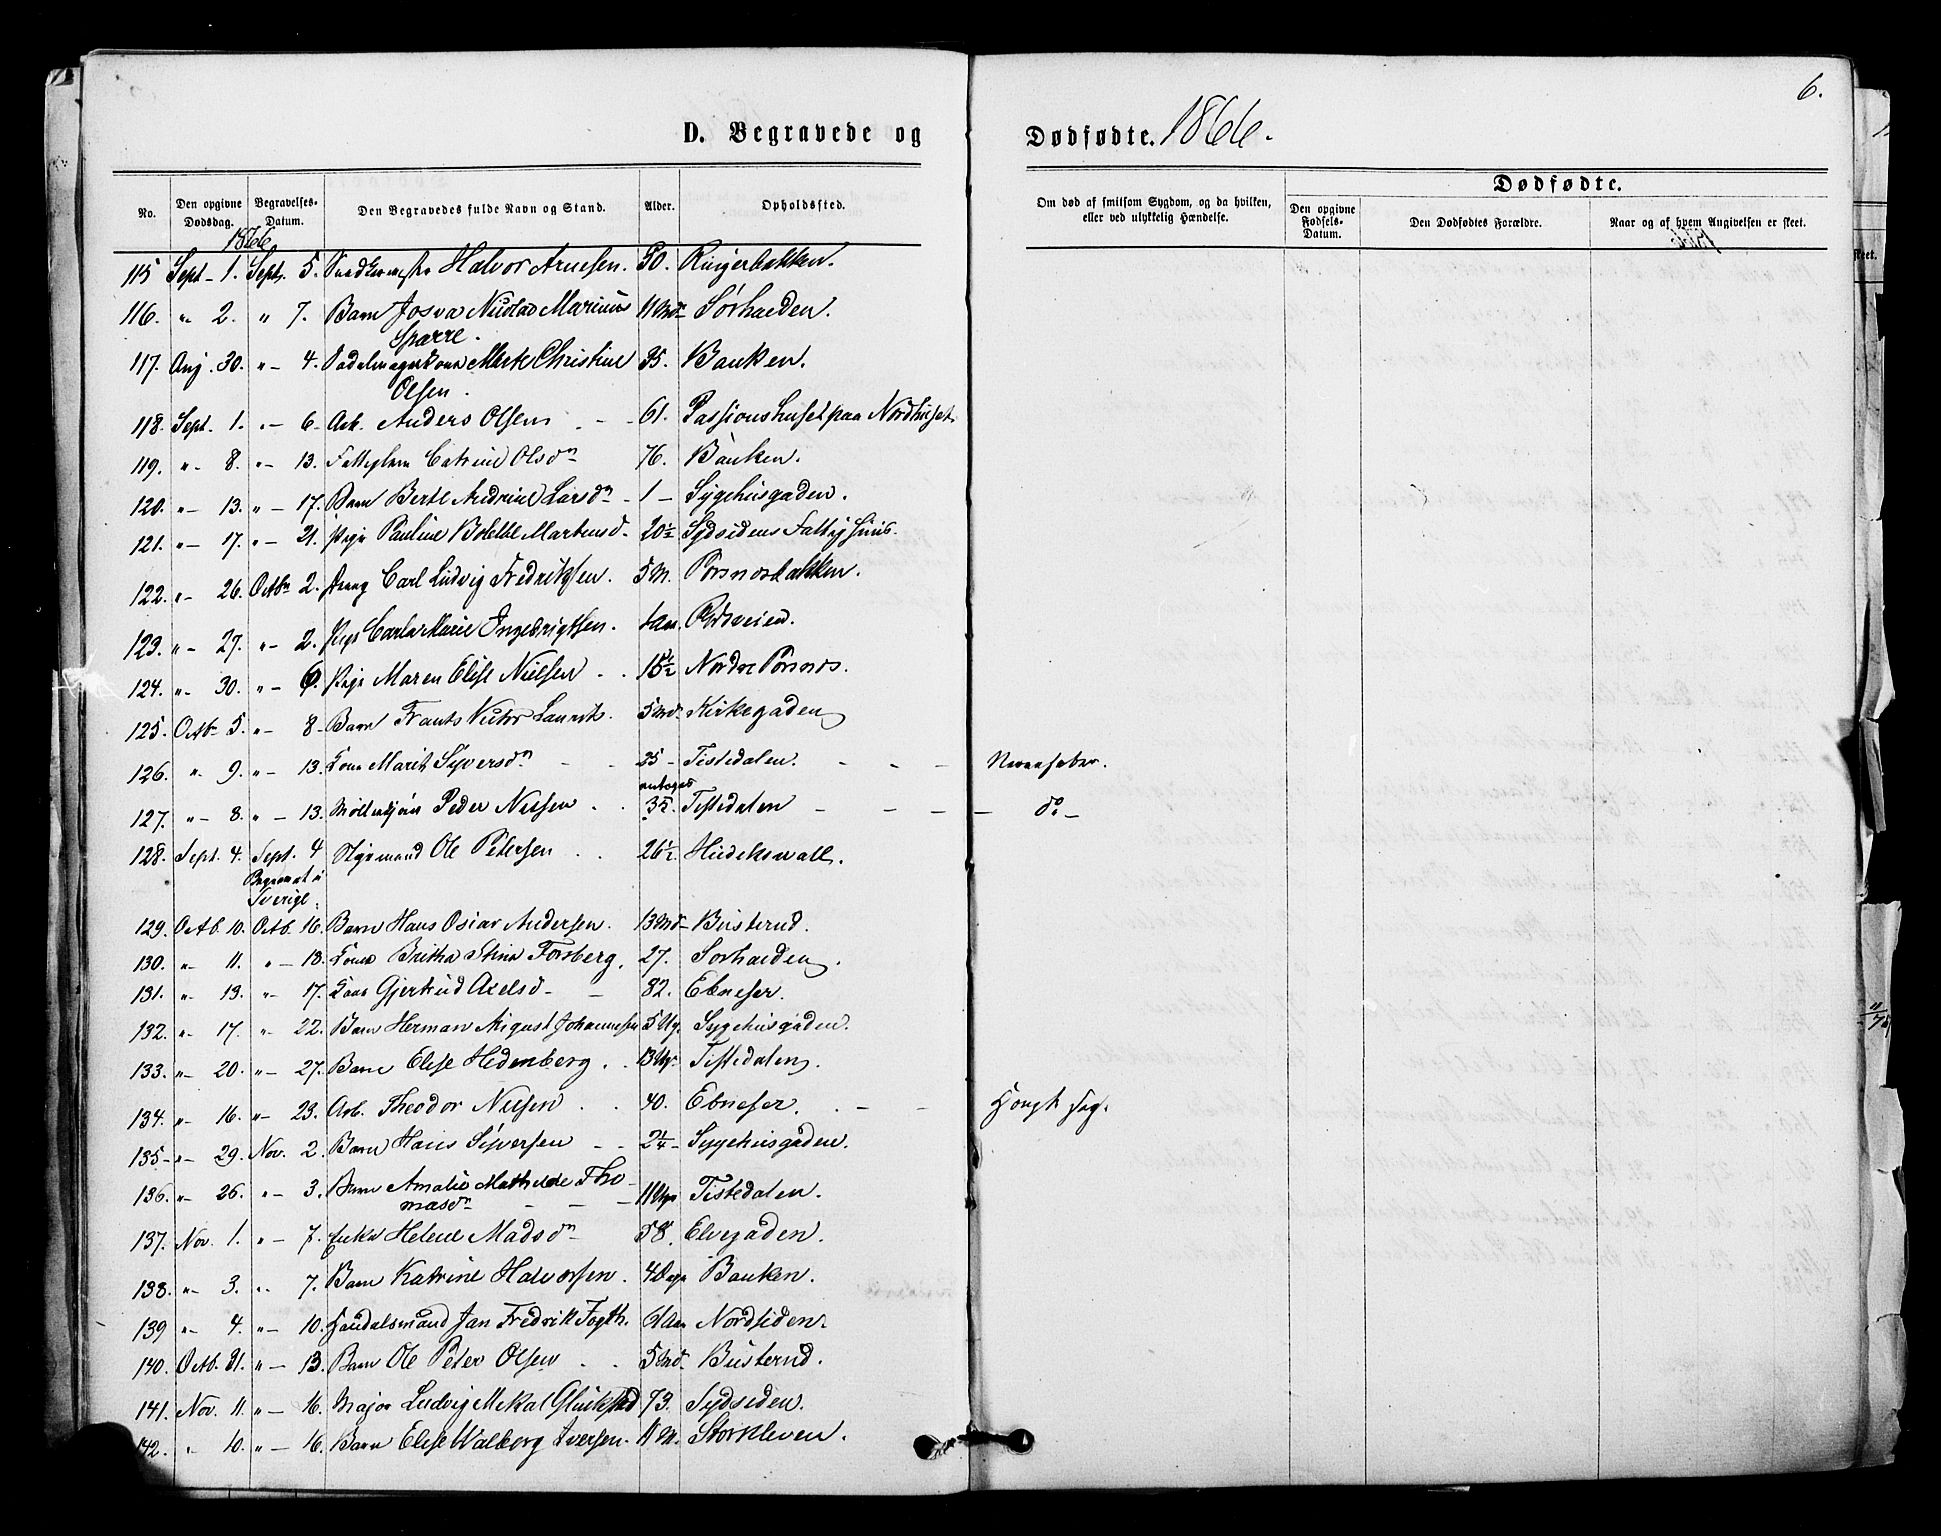 6.
D. Begravede og Dødfødte. 1866.
No. Den opgivne Dødsdag. Begravelses-Datum. Den Begravedes fulde Navn og Stand. Alder. Opholdssted. Om død af smitsom Sygdom, og da hvilken, eller ved ulykkelig Hændelse.
Dødfødte.
Den opgivne Fødsels-Datum. Den Dødfødtes Forældre. Naar og af hvem Angivelsen er skeet.
1866
115 Sept - 1. Sept. 5. Halvor Arnesen. 50. Ringerbakken.
116. " 2. " 7. Barn Josva Nicolai Marinius 11 Md Sørhalden.
Sparre.
117. Aug. 30. " - 4. Merte Christine 35. Banken.
Olsen.
118. Sept. 1. " - 6. Arb. Anders Olsen 61. Passionshuset paa Nordsiset
119. " - 8. " - 13. Fattiglem Catrine Olsdn 76. Banken.
120. " - 13. " - 17. Barn Berte Andrine Larsdn - 1 - Sygehusgaden.
121. " - 17. " - 21. Pige Pauline Bolette Martensd. 20½ Sydsidens Fattighuus.
122. " - 26. Octbr 2. Dreng Carl Ludvig Fredriksen. 5 M. Porsnesbakken.
123. " - 27. " - 2. Pige Carla Marie Ingebrigtsen. Rødsveien.
124. " - 30. " - 6. Pige Maren Elise Nielsen 15½ Nordre Porsnes.
125. Octb 5. " - 8. Barn Frants Laurits. 5 Md. Kirkegaden
126. " - 9. " - 13. Kone Marit Syversdn 35 - Tistedalen. Nervefeber.
antages
127. " - 8. " - 13. Peder Nilsen 35. Tistedalen do -
128. Sept. 4. Sept. 4 Styrmand Ole Petersen 26½ Hudikswall.
Begravet i
Sverige.
129. Octb. 10. Octb. 16. Barn Hans Oscar Andersen. 13 Md - Busterud.
130. " - 11. " - 18. Kone Britha Stina Forsberg. 27. Sørhalden.
131. " - 13. " - 17. Kone Gjertrud Axelsd - 82. Ebneser.
132. " - 17. " - 22. Barn Herman August Johannesen 5 Ug. Sygehusgaden.
133. " - 20. " - 27. Barn Elise Hedenberg. 13 Ug. Tistedalen.
134. " - 16. " - 23. Arb. Theodor Nilsen 40. Ebneser.
135 - " - 29. Nov. 2. Barn Hans Syversen 2¼ - Sygehusgaden.
136. " - 26. " - 3. Barn Amalie Mathilde Tho-
masdn 11 Uger Tistedalen.
137. Nov. 1. " - 7. Enke Helene Madsdn 58. Elvegaden.
138. " - 3. " - 7. Barn Katrine Halvorsen. 4 Dage Banken.
139 " - 4. " - 10. Handelsmand Jan Fredrik Fogth. Nordsiden.
140. Octb. 31. " - 13. Barn Ole Peter Olsen 5 Md. Busterud.
141. Nov. 11. " - 16. Major Ludvig Mekal Glückstad 73. Sydsiden.
142. " 10. " - 16. Barn Elise Walborg Iversen. 11 M. Storkleven.